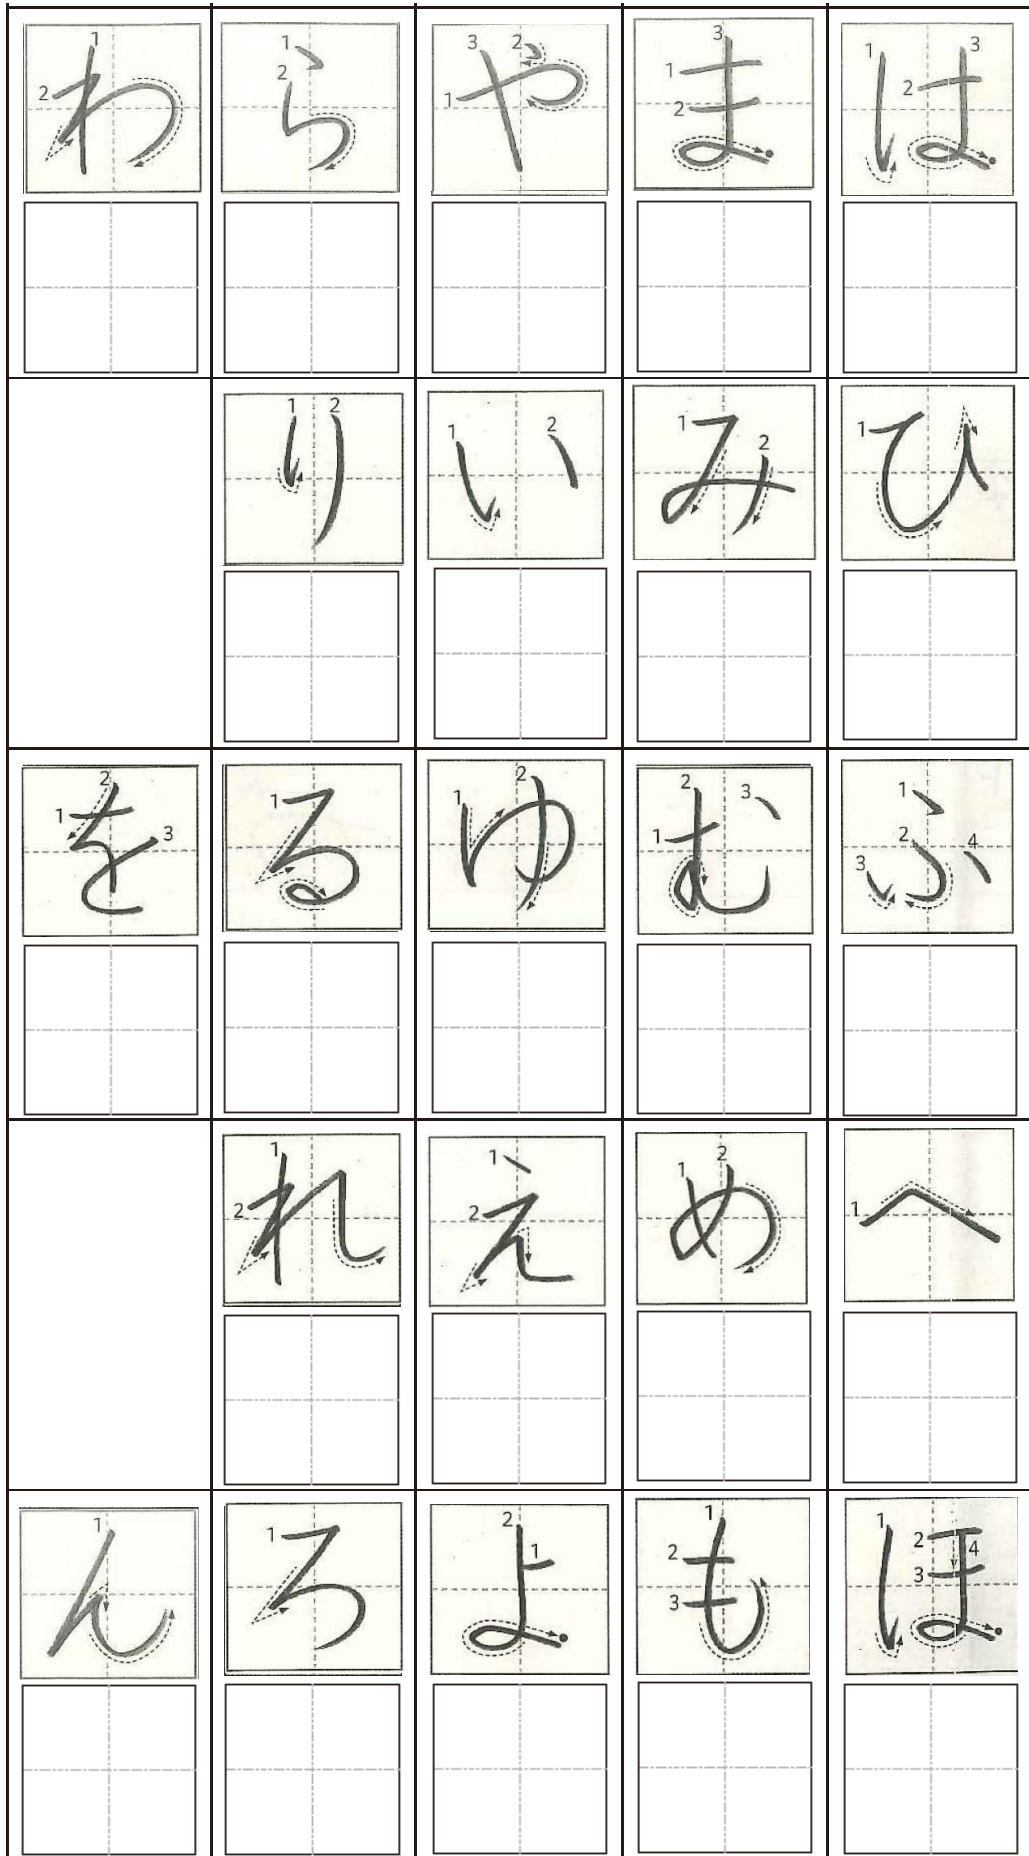 わ ら や ま は
り い み ひ
を る ゆ む ふ
れ え め へ
ん ろ よ も ほ